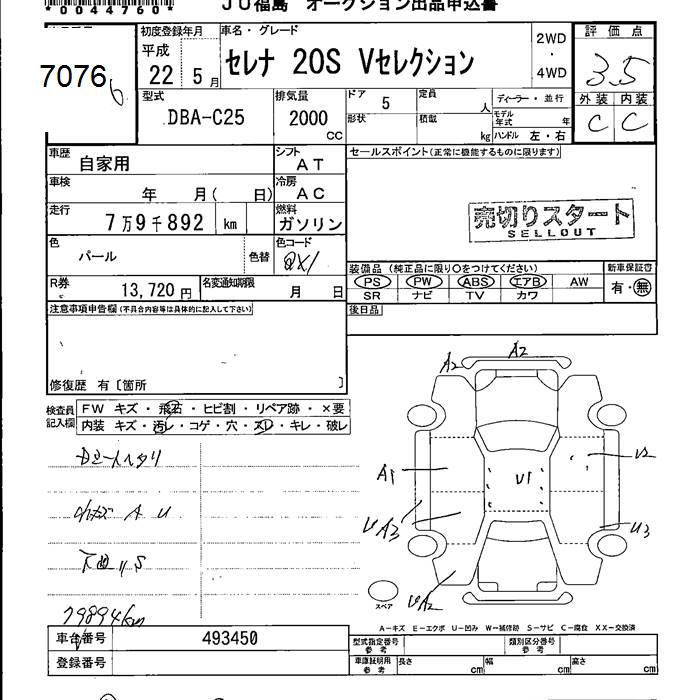 *0044760*
JU福島 オークション出品申込書
初度登録年月
平成
22 5 月
車名・グレード
セレナ 20S Vセレクション
2WD
・
4WD
評価点
3.5
7076
6
型式
DBA-C25
排気量
2000
CC
ドア
5
形状
定員
人
積載
kg
ディーラー・並行
モデル
年式
年
ハンドル 左・右
外装 内装
C C
車歴
自家用
シフト
AT
セールスポイント(正常に機能するものに限ります)
車検
年 月( 日)
冷房
AC
走行
7万9千892 km
燃料
ガソリン
売切りスタート
SELLOUT
色
パール
色替
色コード
QX1
装備品 (純正品に限り○をつけてください)
新車保証書
PS PW ABS エアB AW
有・無
SR ナビ TV カワ
R券
13,720 円
名変通知期限
月 日
注意事項申告欄(不具合内容等は具体的に記入して下さい)
後日品
修復歴 有〔箇所 〕
検査員
記入欄
FW キズ・飛石・ヒビ割・リペア跡・×要
内装 キズ・汚レ・コゲ・穴・スレ・キレ・破レ
A2
A2
A1
U1
U2
UA3
U3
UA2
スペア
79894km
A-キズ E-エクボ U-凹み W-補修跡 S-サビ C-腐食 XX-交換済
車台番号
493450
登録番号
型式指定番号
参考
類別区分番号
参考
車庫証明用
参考
長さ
cm
幅
cm
高さ
cm